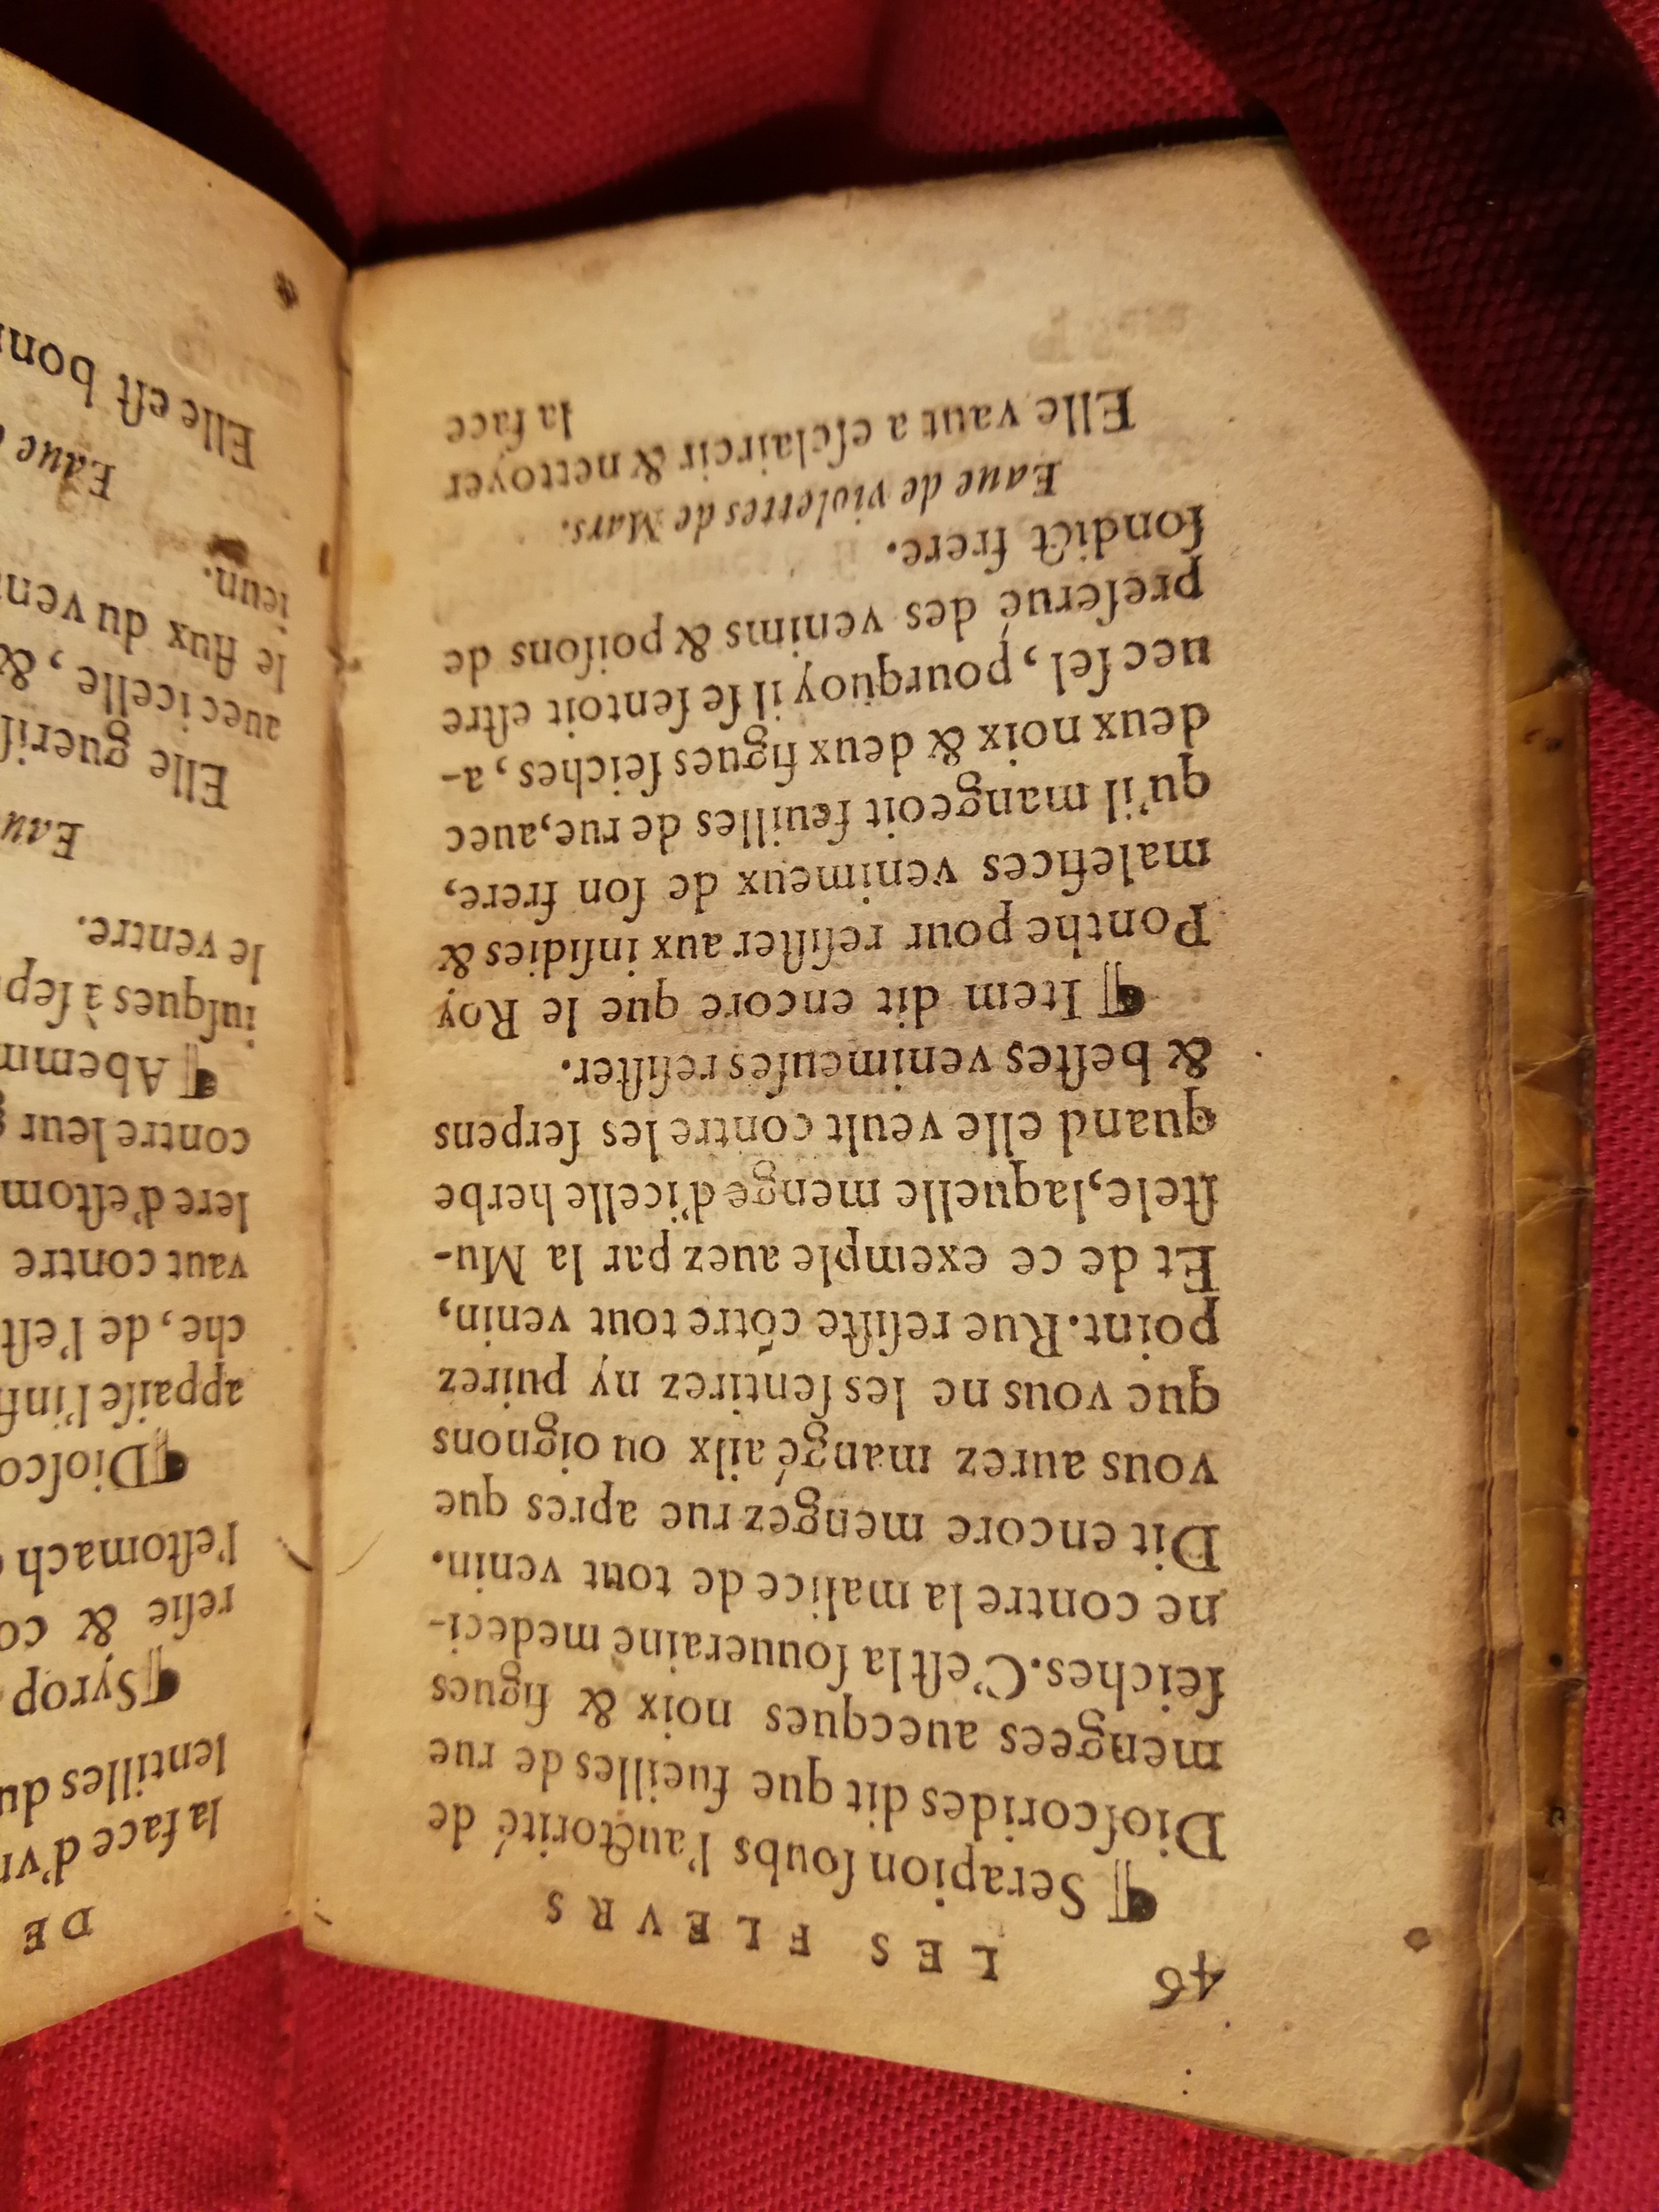 46 LES FLEVRS
¶ Serapion ſoubs l'auctorité de
Dioſcorides dit que fueilles de rue
mengees auecques noix & figues
ſeiches. C'eſt la ſouueraine medeci-
ne contre la malice de tout venin.
Dit encore mengez rue apres que
vous aurez mangé ailx ou oignons
que vous ne les ſentirez ny puirez
point. Rue reſiſte cōtre tout venin,
Et de ce exemple auez par la Mu-
ſtele, laquelle menge d'icelle herbe
quand elle veult contre les ſerpens
& beſtes venimeuſes reſiſter.
¶ Item dit encore que le Roy
Ponthe pour reſiſter aux inſidies &
malefices venimeux de ſon frere,
qu'il mangeoit feuilles de rue, auec
deux noix & deux figues ſeiches, a-
uec ſel, pourquoy il ſe ſentoit eſtre
preſerué des venims & poiſons de
ſondict frere.
Eaue de violettes de Mars.
Elle vaut a eſclaircir & nettoyer
la face
DE
la face d'vn
lentilles du
¶ Syrop
reſie & co
l'eſtomach
¶ Dioſco
appaiſe l'inf
che, de l'eſt
vaut contre
lere d'eſtom
contre leur
¶ Abem
iuſques à ſep
le ventre.
Eau
Elle gueriſ
auec icelle, &
le flux du ven
ieun.
Eaue
Elle eſt bon